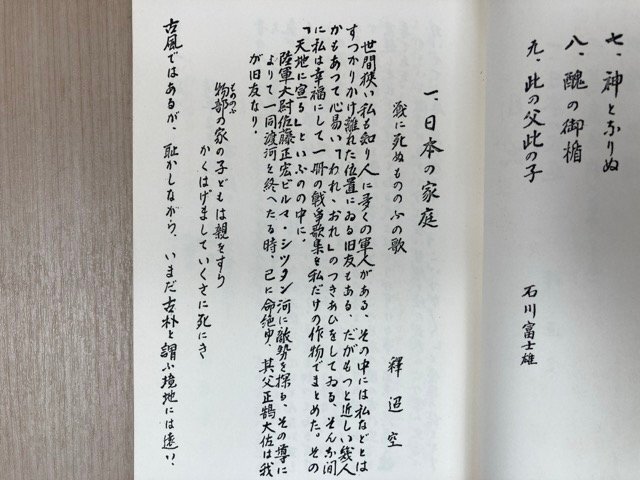 七、神となりぬ
八、醜の御楯
九、此の父此の子
石川富士雄
一、日本の家庭
戦に死ぬもののふの歌
釋迢空
世間狭い私も知り人に多くの軍人がある、その中には私などとは
すつかりかけ離れた位置にゐる旧友もある、だがもつと近しい幾人
かもあつて心易い「われ、おれ」のつきあひをしてゐる、そんな間
に私は幸福にして一冊の戦争歌集を私だけの作物でまとめた。その
「天地に宣る」といふのの中に、
陸軍大尉佐藤正宏ビルマ・シツタン河に敵勢を探る、その導に
よりて一同渡河を終へたる時、已に命絶ゆ、其父正鶴大佐は我
が旧友なり、
もののふ
物部の家の子どもは親をすら
かくはげましていくさに死にき
古風ではあるが、恥かしながら、いまだ古朴と謂ふ境地には遠い、